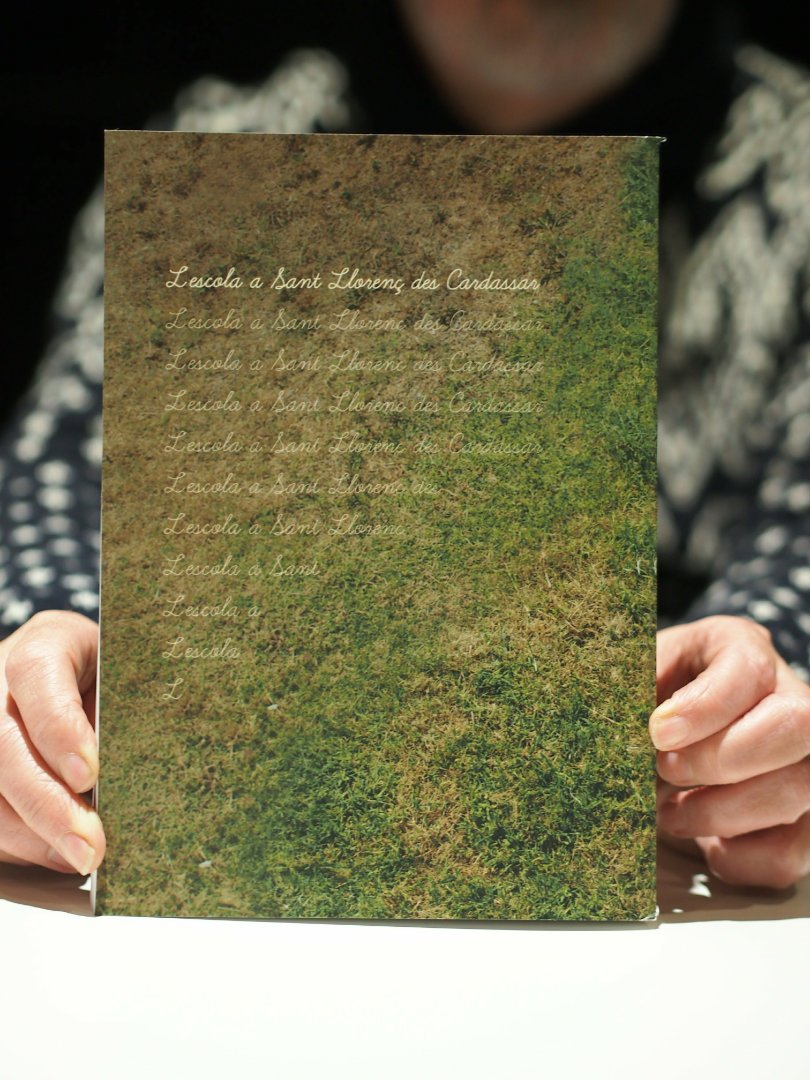 L'escola a Sant Llorenç des Cardassar
L'escola a Sant Llorenç des Cardassar
L'escola a Sant Llorenç des Cardassar
L'escola a Sant Llorenç des Cardassar
L'escola a Sant Llorenç des Cardassar
L'escola a Sant Llorenç des
L'escola a Sant Llorenç
L'escola a Sant
L'escola a
L'escola
L